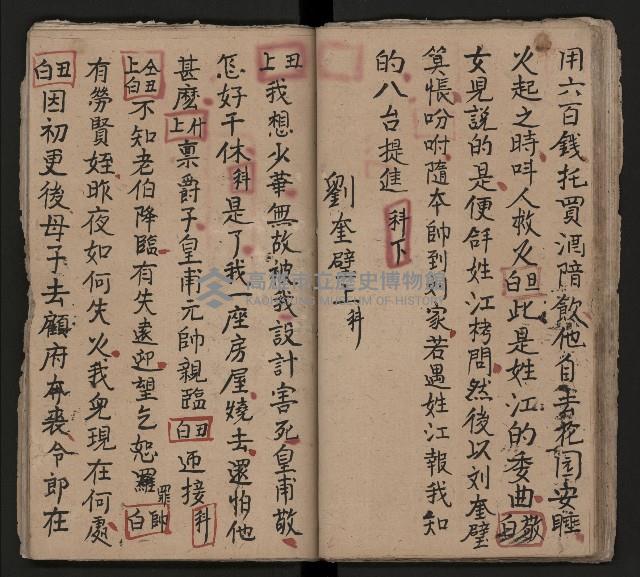 用六百錢托買酒暗飲他自去花园安睡
火起之時叫人救及旦白此是姓江的委曲敬白
女兒説的是便舒姓江拷問然後以刘奎璧
筭悵吩咐隨本帥到刘家若遇姓江報我知
的八台提進科下
劉奎璧上科
丑上我想少華無故被我設計害死皇甫敬
怎好干休科是了我一座房屋燒去還怕他
甚麽什上禀爵子皇甫元帥親臨丑白迊接科
仝上丑白不知老伯降臨有失遠迎望乞恕羅罪帥白
有勞賢姪昨夜如何失火我兒現在何處
丑白因初更後母子去顧府夲丧令郎在
高雄市立歷史博物館
KAOHSIUNG MUSEUM OF HISTORY